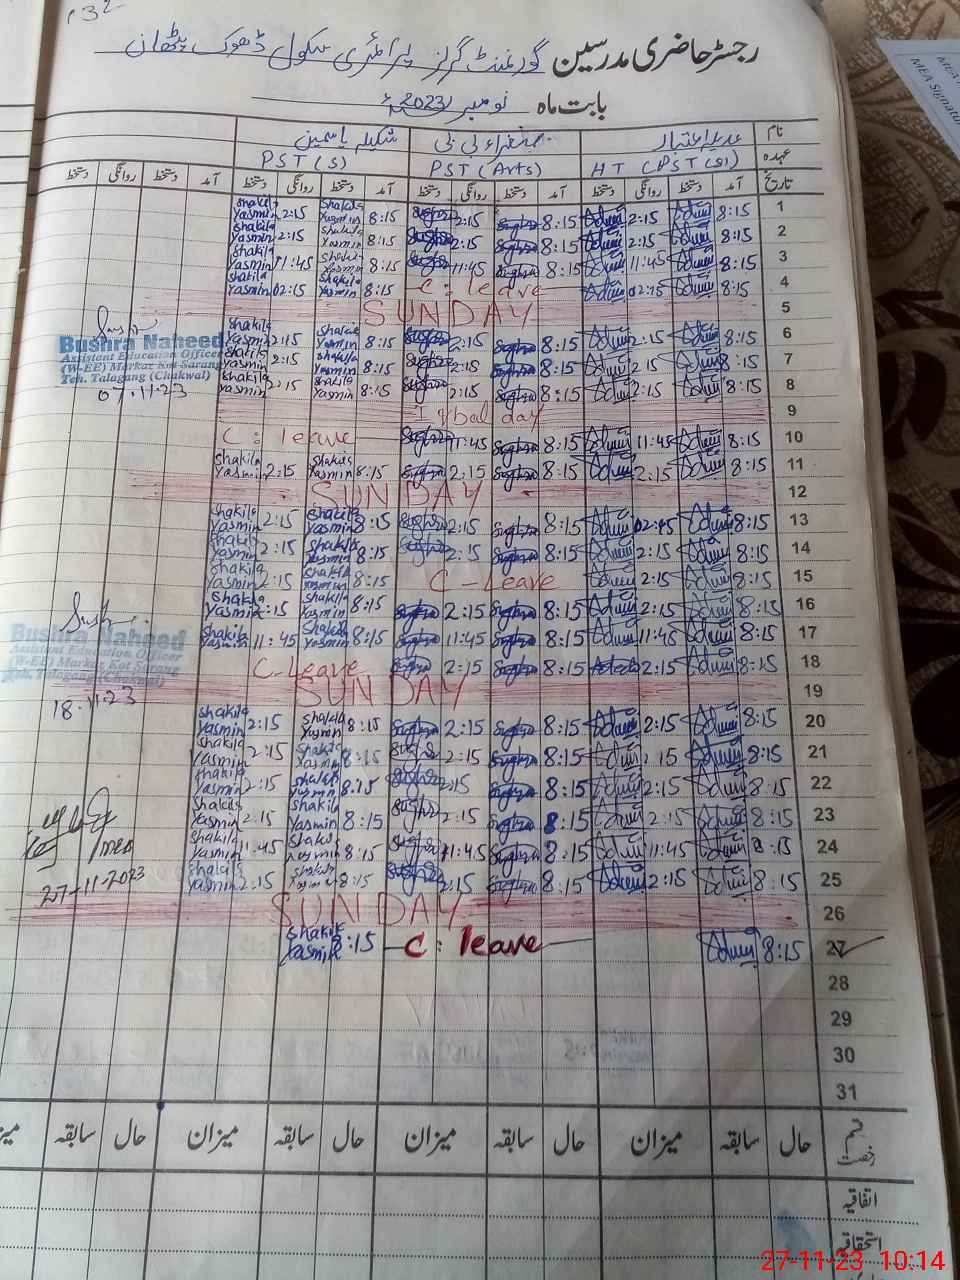 132
رجسٹر حاضری مدرسین گورنمنٹ گرلز پرائمری سکول ڈھوک پٹھان
بابت ماہ نومبر 2023ء
نام شکیلہ یاسمین
عہدہ HT (PST(S)) PST (Arts) PST (S)
تاریخ آمد دستخط روانگی دستخط آمد دستخط روانگی دستخط آمد دستخط روانگی دستخط آمد دستخط روانگی دستخط
Shakila Yasmin 2:15 Shakila Yasmin 8:15 Sughra 2:15 Sughra 8:15 2:15 8:15 1
Shakila Yasmin 2:15 Shakila Yasmin 8:15 Sughra 2:15 Sughra 8:15 2:15 8:15 2
Shakila Yasmin 11:45 Shakila Yasmin 8:15 Sughra 11:45 Sughra 8:15 11:45 8:15 3
Shakila Yasmin 02:15 Shakila Yasmin 8:15 C: leave 02:15 8:15 4
SUNDAY 5
Shakila Yasmin 2:15 Shakila Yasmin 8:15 Sughra 2:15 Sughra 8:15 2:15 8:15 6
Bushra Naheed
Assistant Education Officer
(W-EE) Markaz Kot Sarang
Teh. Talagang (Chakwal)
07-11-23
Shakila Yasmin 2:15 Shakila Yasmin 8:15 Sughra 2:15 Sughra 8:15 2:15 8:15 7
Shakila Yasmin 2:15 Shakila Yasmin 8:15 Sughra 2:15 Sughra 8:15 2:15 8:15 8
Iqbal day 9
C: leave Sughra 11:45 Sughra 8:15 11:45 8:15 10
Shakila Yasmin 2:15 Shakila Yasmin 8:15 Sughra 2:15 Sughra 8:15 2:15 8:15 11
SUNDAY 12
Shakila Yasmin 2:15 Shakila Yasmin 8:15 Sughra 2:15 Sughra 8:15 02:45 8:15 13
Shakila Yasmin 2:15 Shakila Yasmin 8:15 Sughra 2:15 Sughra 8:15 2:15 8:15 14
Shakila Yasmin 2:15 Shakila Yasmin 8:15 C-Leave 2:15 8:15 15
Shakila Yasmin 2:15 Shakila Yasmin 8:15 Sughra 2:15 Sughra 8:15 2:15 8:15 16
Shakila Yasmin 11:45 Shakila Yasmin 8:15 Sughra 11:45 Sughra 8:15 11:45 8:15 17
Bushra Naheed
Assistant Education Officer
(W-EE) Markaz Kot Sarang
Teh. Talagang (Chakwal)
18-11-23
C-Leave Sughra 2:15 Sughra 8:15 2:15 8:15 18
SUNDAY 19
Shakila Yasmin 2:15 Shakila Yasmin 8:15 Sughra 2:15 Sughra 8:15 2:15 8:15 20
Shakila Yasmin 2:15 Shakila Yasmin 8:15 Sughra 2:15 Sughra 8:15 2:15 8:15 21
Shakila Yasmin 2:15 Shakila Yasmin 8:15 Sughra 2:15 Sughra 8:15 2:15 8:15 22
Shakila Yasmin 2:15 Shakila Yasmin 8:15 Sughra 2:15 Sughra 8:15 2:15 8:15 23
Shakila Yasmin 11:45 Shakila Yasmin 8:15 Sughra 11:45 Sughra 8:15 11:45 8:15 24
27-11-2023
Shakila Yasmin 2:15 Shakila Yasmin 8:15 Sughra 2:15 Sughra 8:15 2:15 8:15 25
SUNDAY 26
Shakila Yasmin 8:15 C: leave 8:15 27
28
29
30
31
قسم رخصت حال سابقہ میزان حال سابقہ میزان حال سابقہ میزان حال سابقہ
اتفاقیہ
استحقاقیہ
MEA Signature
27-11-23 10:14